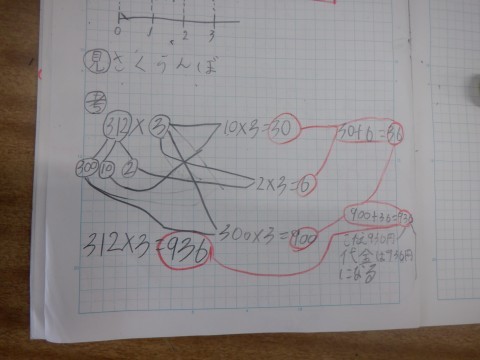 0 1 2 3
見 さくうんぼ
考
312×3
10×3=30
30+6=36
300 10 2
2×3=6
900+36=936
300×3=900
312×3=936
代金は936円
になる